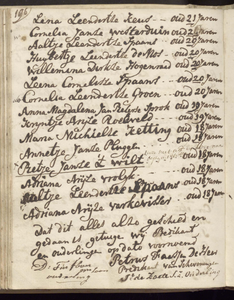 196
Lena Leenderts Keus — oud 21 Jaren
Cornelia Jans Westerduin oud 21 Jaren
Aaltje Leenderts Spaans oud 20 Jaren
Leenderts de Vos — oud 20 Jaren
Willemina Dirks Hogenraad — oud 20 Jaren
Leena Cornelisse Spaans — oud 20 Jaren
Cornelia Leenderts Groen — oud 20 Jaren
Anna Magdalena Van Sprok oud 19 Jaren
Arijse Roeleveld — oud 19 Jaren
Maria Michielse Zetting — oud 18 Jaren
Annetje Janse Pluger oud 18 Jaren
Pietje Janse wilt — oud 18 Jaren
Adriana Arijse vrolijk — oud 18 Jaren
Aaltje Leenderts Spaans oud 18 Jaren
Adriana Arijse varkevisser oud 18 Jaren
Dat dit alles alzo geschied en
gedaan is getuige wij Predikant
en ouderlinge op dato voornoemt
Petrus Haasje
Predikant van Scheveninge
Ouderling